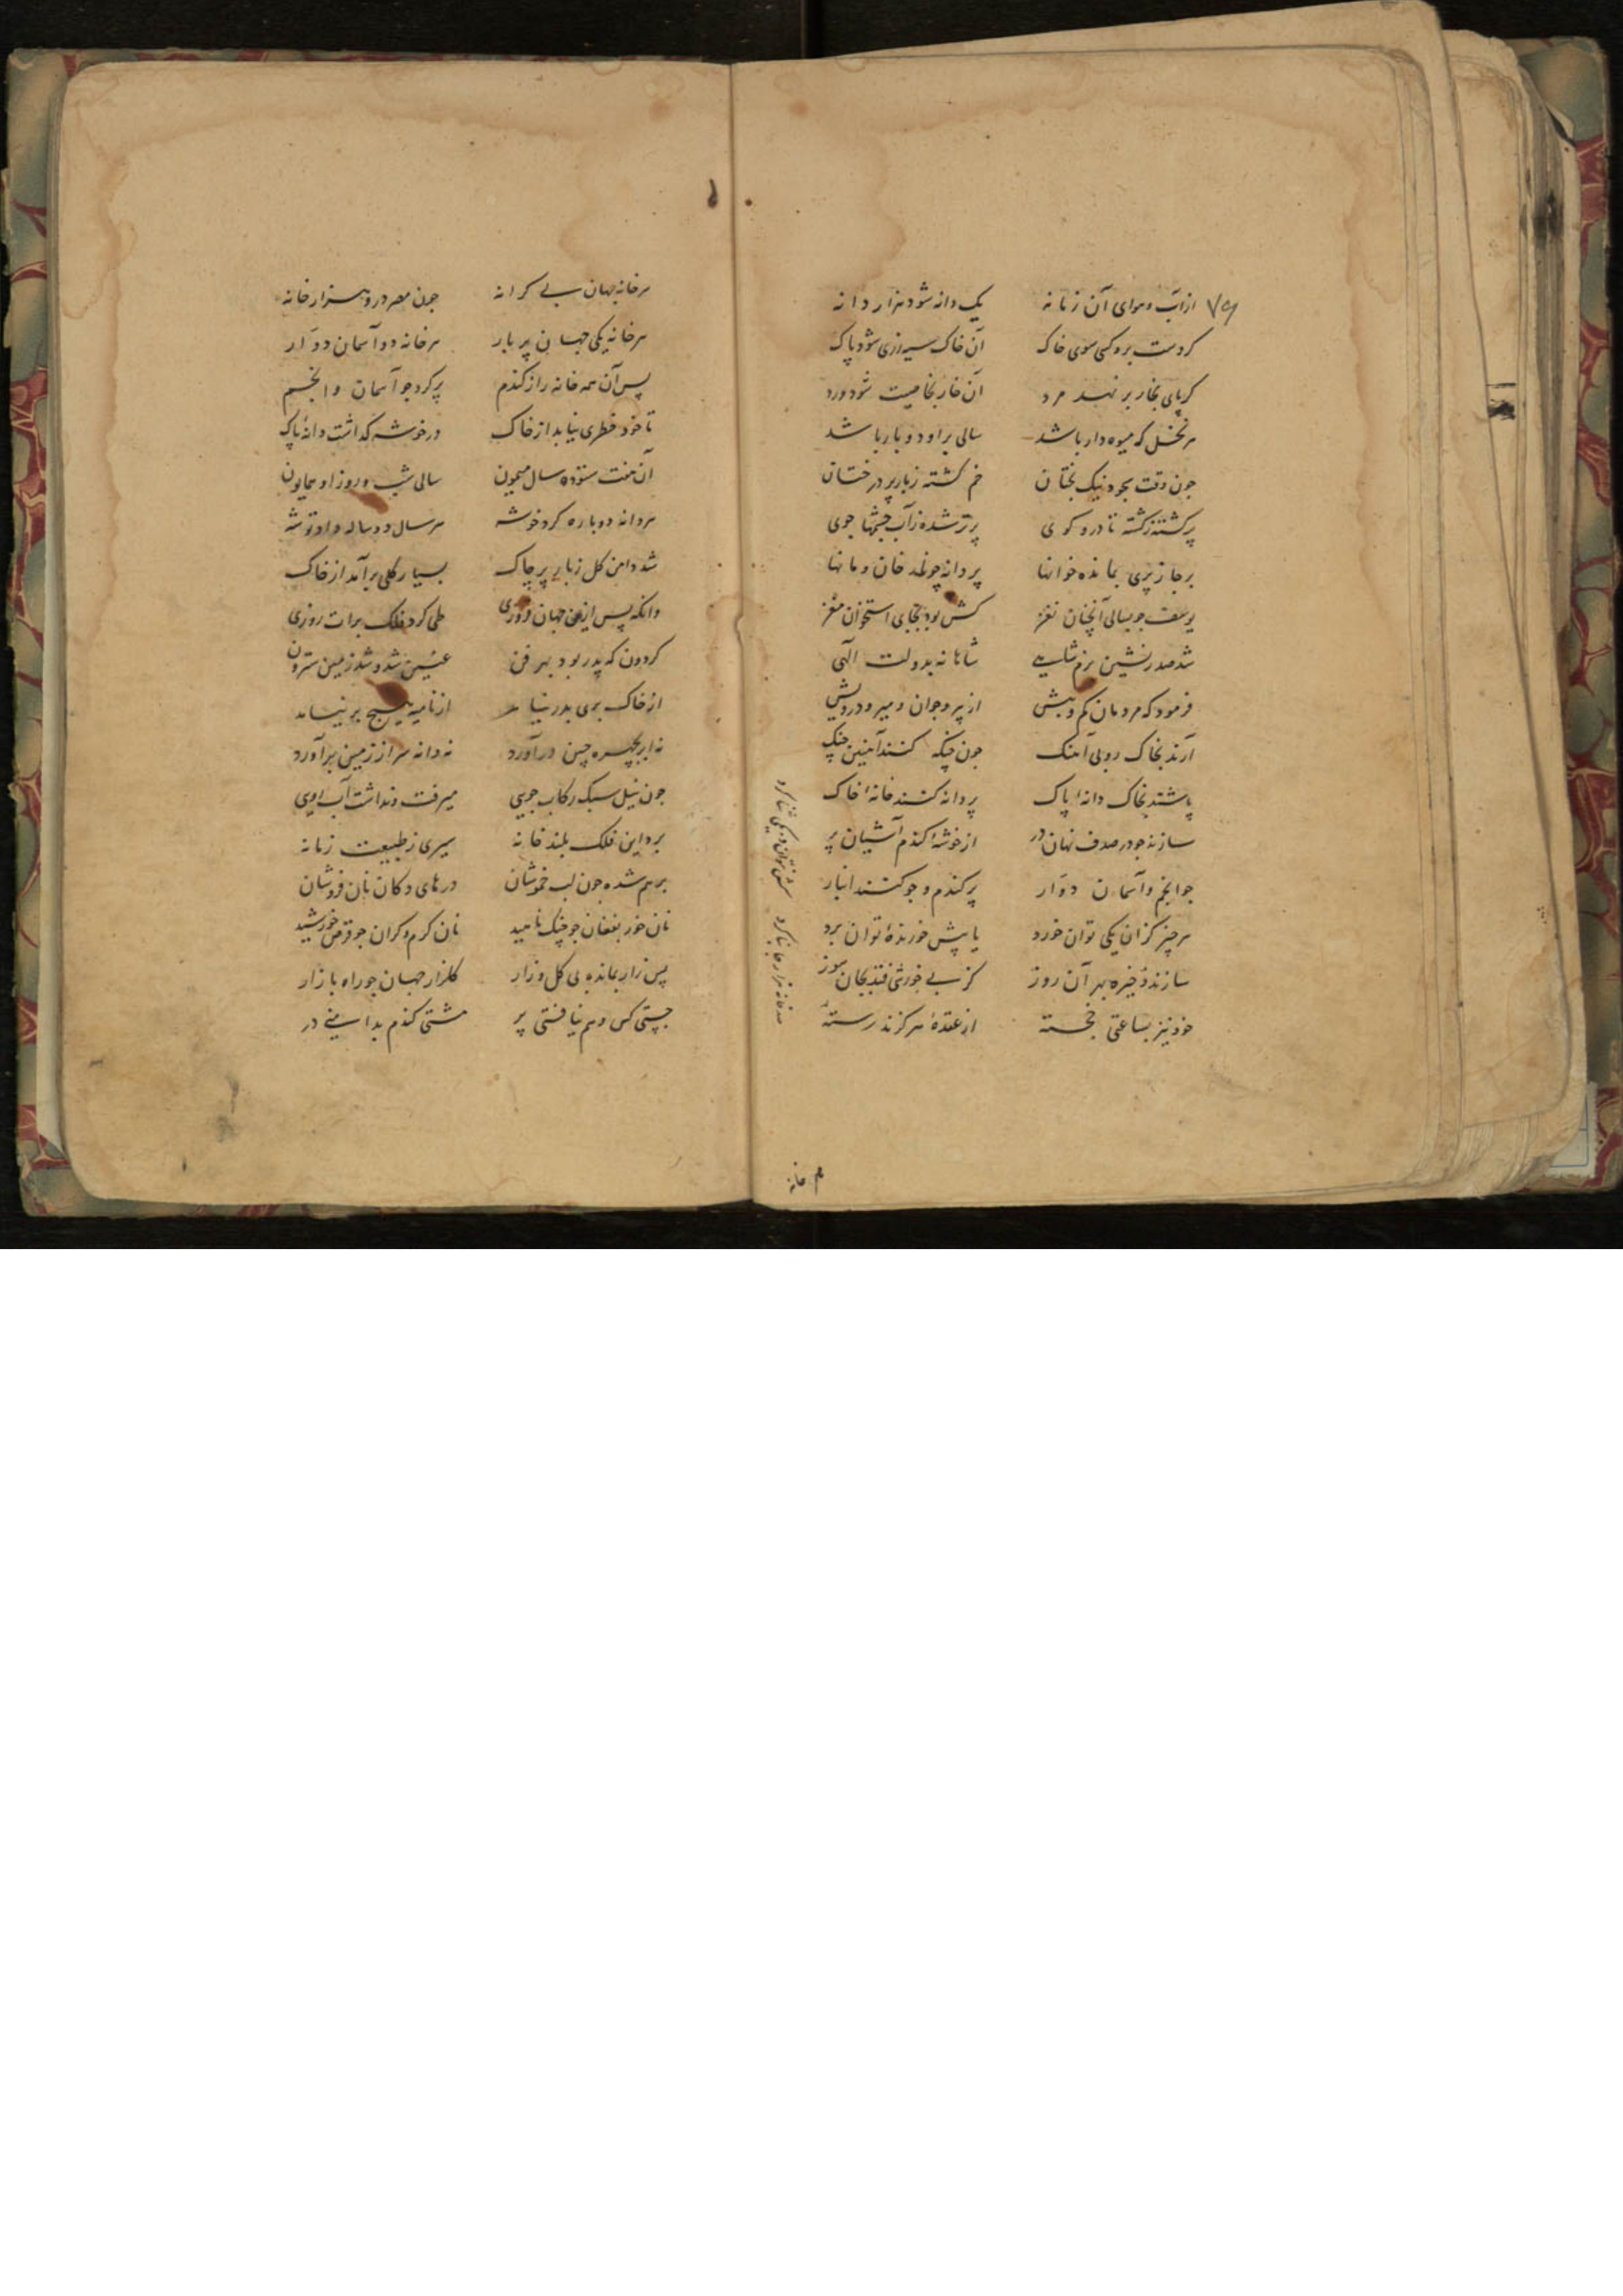 ۷۹
از آب و هوای آن زمانه یک دانه شود هزار دانه
کر دست برد کسی سوی خاک آن خاک سیه زری شود پاک
کر پای بخار بر نهد مرد آن خار بخاصیت شود ورد
هر نخل که میوه دار باشد سالی بر او دو بار باشد
چون وقت بجود نیک بختان خم کشته ز بار بر درختان
پر کشته ز کشته تا در و کوی پرتر شده ز آب چشمها جوی
بر جا ز پری بمانده خوانها پر دانه خان و مانها
یوسف چو بسالی آنچنان نغز کش بود بجای استخوان مغز
شد صدر نشین بزم شاهی شاهانه بدولت الهی
فرمود که مردمان کم و بیش از پیر و جوان و میر و درویش
آرند بخاک روبی آهنک چون چنکه کنند آهنین چنک
پاشند بخاک دانه پاک پر دانه کنند خانه خاک
سازند چو در صدف نهان در از خوشه کندم آشیان پر
چو انجم و آسمان دوار پر کندم و جو کنند انبار
هر چیز کزان یکی توان خورد یا پیش خورنده توان برد
سازند ذخیره بهر آن روز کز بی خورشی فتد بجان سوز
خود نیز بساعتی خجسته از عقده هر کزند رسته
صد خانه هزار جا بنا کرد
هم خانه
هر خانه جهان بی کرانه چون مصر در و هزار خانه
هر خانه یکی جهان پر بار هر خانه دو آسمان دوار
پس آن همه خانه را ز کندم پر کرد چو آسمان و انجم
تا خود خطری نیابد از خاک در خوشه کذاشت دانه پاک
آن هفت ستوده سال میمون سالی شب و روز او همایون
هر دانه دوباره کرد خوشه هر سال دو ساله داد توشه
شد دامن کل ز بار پر چاک بسیار کلی برآمد از خاک
وانکه پس از جهان فروزی طی کرد فلک برات روزی
کردون که پدر بود بهر فن عنین شد و شد زمین سترون
از خاک بری بدر نیامد از نامیه هیچ بر نیامد
نه ابر بچهره چین درآورد نه دانه سر از زمین برآورد
چون نیل سبک رکاب جویی میرفت و نداشت آب رویی
برد این فلک بلند خانه سیری ز طبیعت زمانه
برهم شده چون لب خموشان درهای دکان نان فروشان
نان خور بفغان چو چنک ناهید نان کرم و کران چو قرص خورشید
پس زار بمانده بی کل و زار کلزار جهان چو راه بازار
جستی کس و هم نیافتی پر مشتی کندم بدامنی در